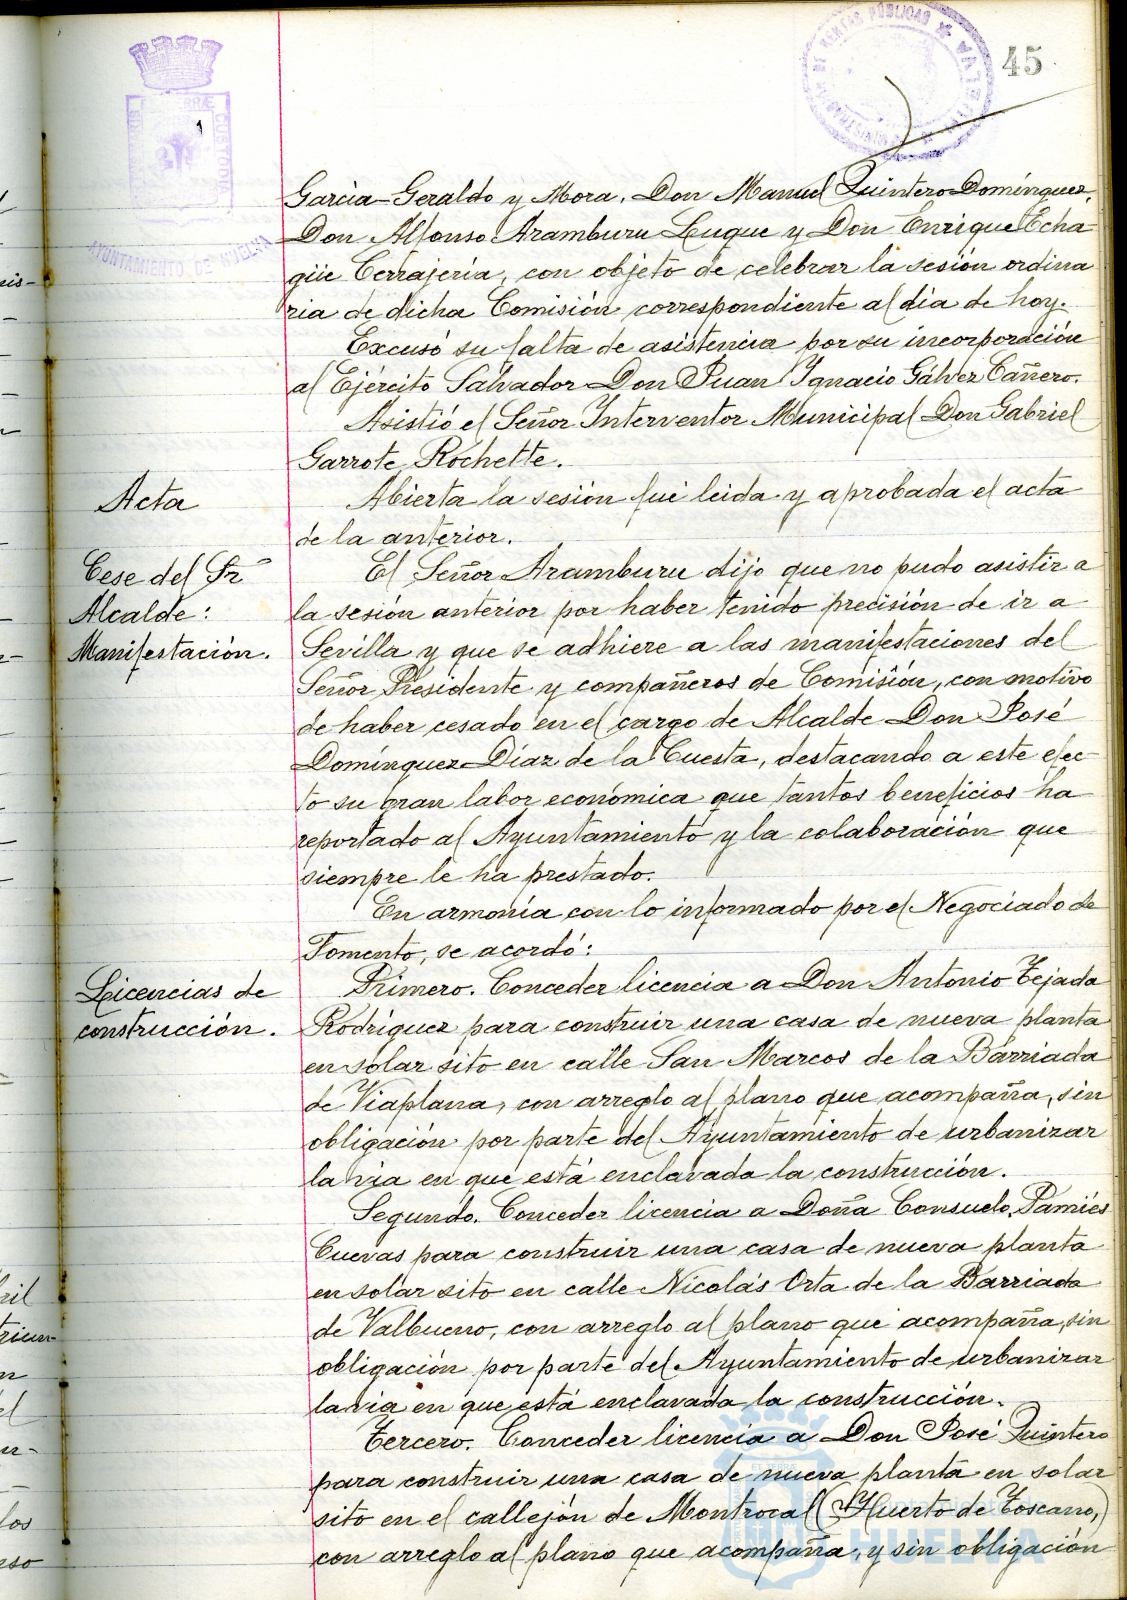 45
AYUNTAMIENTO DE HUELVA
García-Geraldo y Mora, Don Manuel Quintero Domínguez,
Don Alfonso Aramburu Luque y Don Enrique Echa-
güe Cerrajería, con objeto de celebrar la sesión ordina
ria de dicha Comisión correspondiente al día de hoy.
Excusó su falta de asistencia por su incorporación
al Ejército Salvador Don Juan Ygnacio Gálvez Cañero.
Asistió el Señor Ynterventor Municipal Don Gabriel
Garrote Rochette.
Acta
Abierta la sesión fué leida y aprobada el acta
de la anterior.
Cese del Sr
Alcalde:
Manifestación.
El Señor Aramburu dijo que no pudo asistir a
la sesión anterior por haber tenido precisión de ir a
Sevilla y que se adhiere a las manifestaciones del
Señor Presidente y compañeros de Comisión, con motivo
de haber cesado en el cargo de Alcalde Don José
Domínguez Díaz de la Cuesta, destacando a este efec-
to su gran labor económica que tantos beneficios ha
reportado al Ayuntamiento y la colaboración que
siempre le ha prestado.
En armonía con lo informado por el Negociado de
Fomento, se acordó:
Licencias de
construcción.
Primero. Conceder licencia a Don Antonio Tejada
Rodríguez para construir una casa de nueva planta
en solar sito en calle San Marcos de la Barriada
de Viaplana, con arreglo al plano que acompaña, sin
obligación por parte del Ayuntamiento de urbanizar
la via en que está enclavada la construcción.
Segundo. Conceder licencia a Doña Consuelo Pamiés
Cuevas para construir una casa de nueva planta
en solar sito en calle Nicolás Orta de la Barriada
de Valbueno, con arreglo al plano que acompaña, sin
obligación por parte del Ayuntamiento de urbanizar
la via en que está enclavada la construcción.
Tercero. Conceder licencia a Don José Quintero
para construir una casa de nueva planta en solar
sito en el callejón de Montrocal (Huerto de Toscano,)
con arreglo al plano que acompaña, y sin obligación
HUELVA